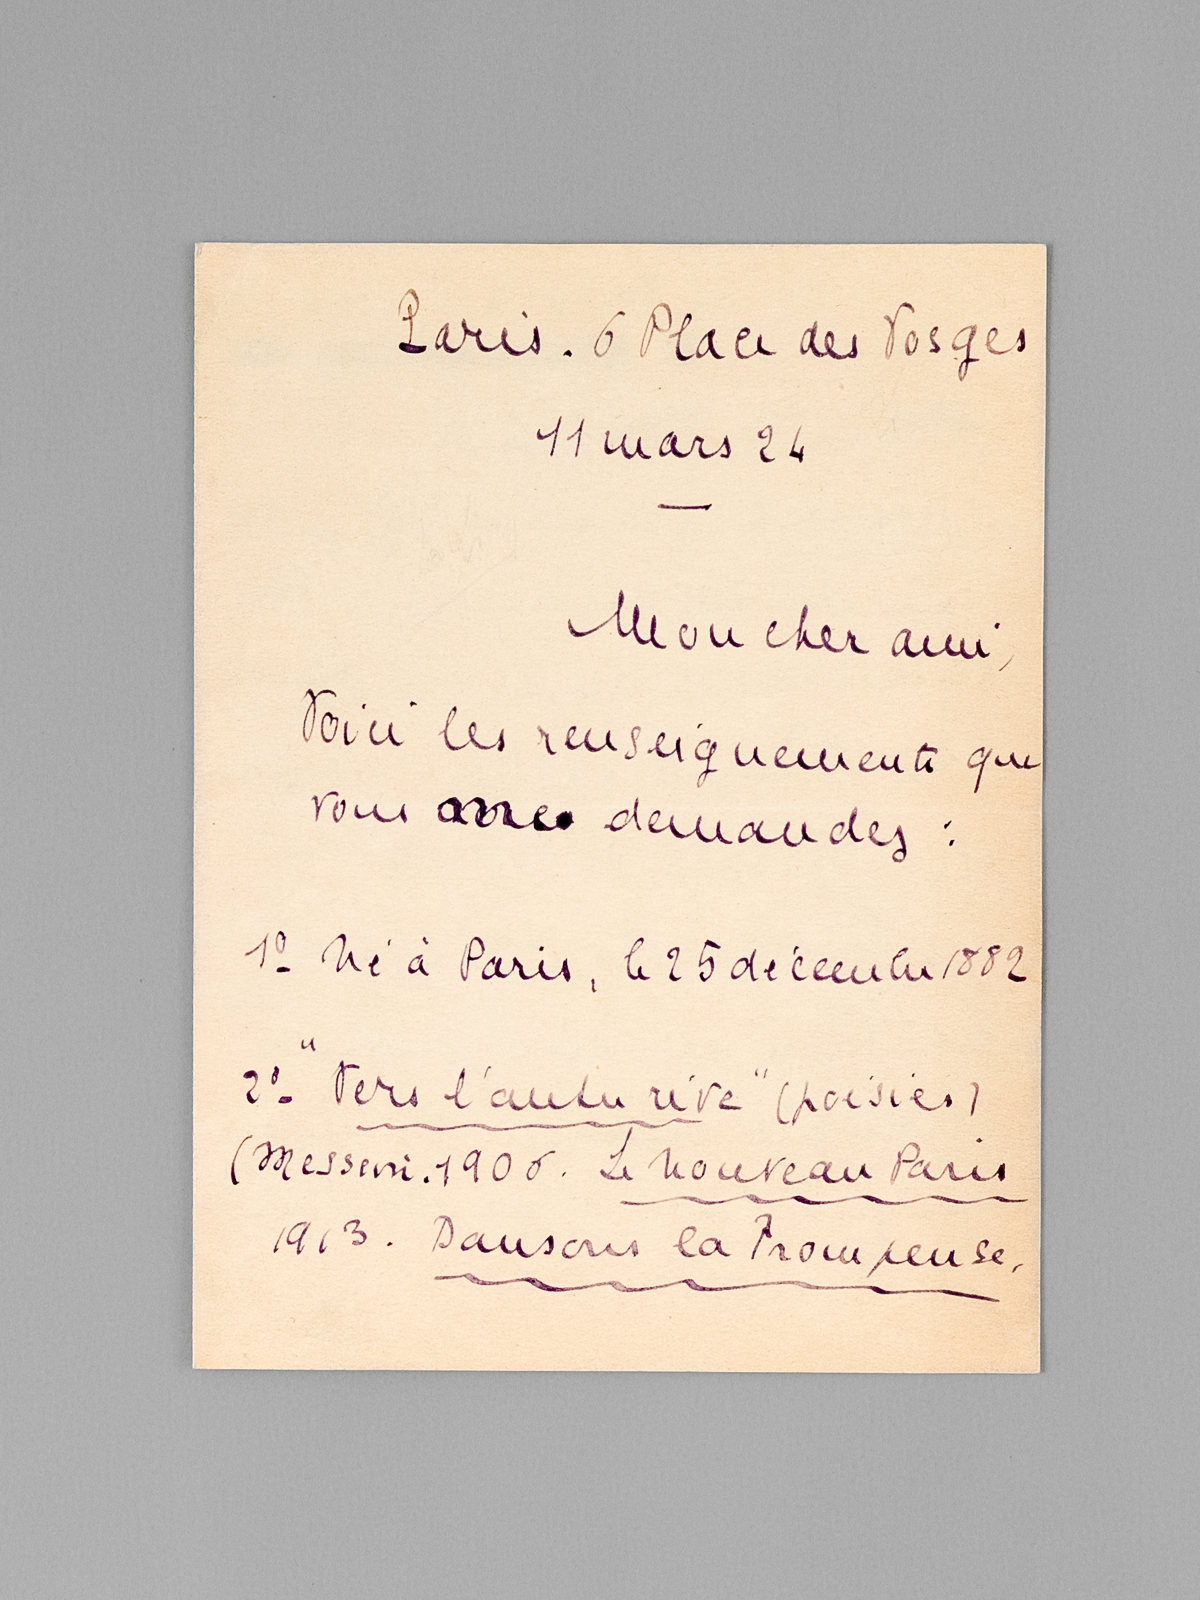 Paris. 6 Place des Vosges
11 mars 24
Mon cher ami,
Voici les renseignements que
vous demandez :
1º Né à Paris, le 25 décembre 1882
2º "Vers l'autre rive" (poésies)
(Messein. 1906. Le nouveau Paris
1913. Dansons la Trompeuse.